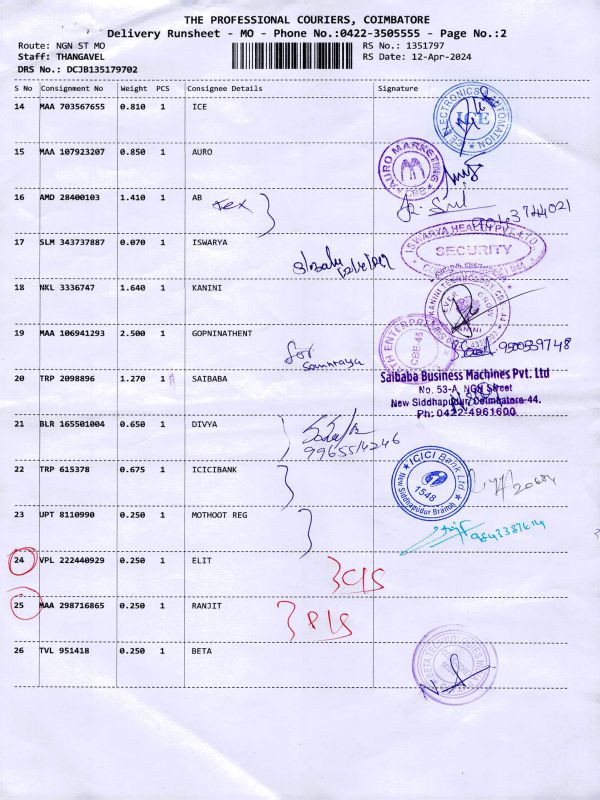 THE PROFESSIONAL COURIERS, COIMBATORE
Delivery Runsheet - MO - Phone No.:0422-3505555 - Page No.:2
Route: NGN ST MO RS No.: 1351797
Staff: THANGAVEL RS Date: 12-Apr-2024
DRS No.: DCJB135179702
S No Consignment No Weight PCS Consignee Details Signature
14 MAA 703567655 0.810 1 ICE
ICE
15 MAA 107923207 0.850 1 AURO
AURO MARKETING
CBE
16 AMD 28400103 1.410 1 AB
tex
17 SLM 343737887 0.070 1 ISWARYA
ISWARYA HEALTH PVT. LTD.
SECURITY
18 NKL 3336747 1.640 1 KANINI
KANINI
19 MAA 106941293 2.500 1 GOPNINATHENT
for
9500539748
20 TRP 2098896 1.270 1 SAIBABA
Saibaba Business Machines Pvt. Ltd
No. 53-A, NGN Street
New Siddhapudur, Coimbatore-44.
Ph: 0422-4961600
21 BLR 165501004 0.650 1 DIVYA
9965514246
22 TRP 615378 0.675 1 ICICIBANK
ICICI Bank Ltd.
1548
New Siddhapudur Branch
23 UPT 8110990 0.250 1 MOTHOOT REG
24 VPL 222440929 0.250 1 ELIT
25 MAA 298716865 0.250 1 RANJIT
26 TVL 951418 0.250 1 BETA